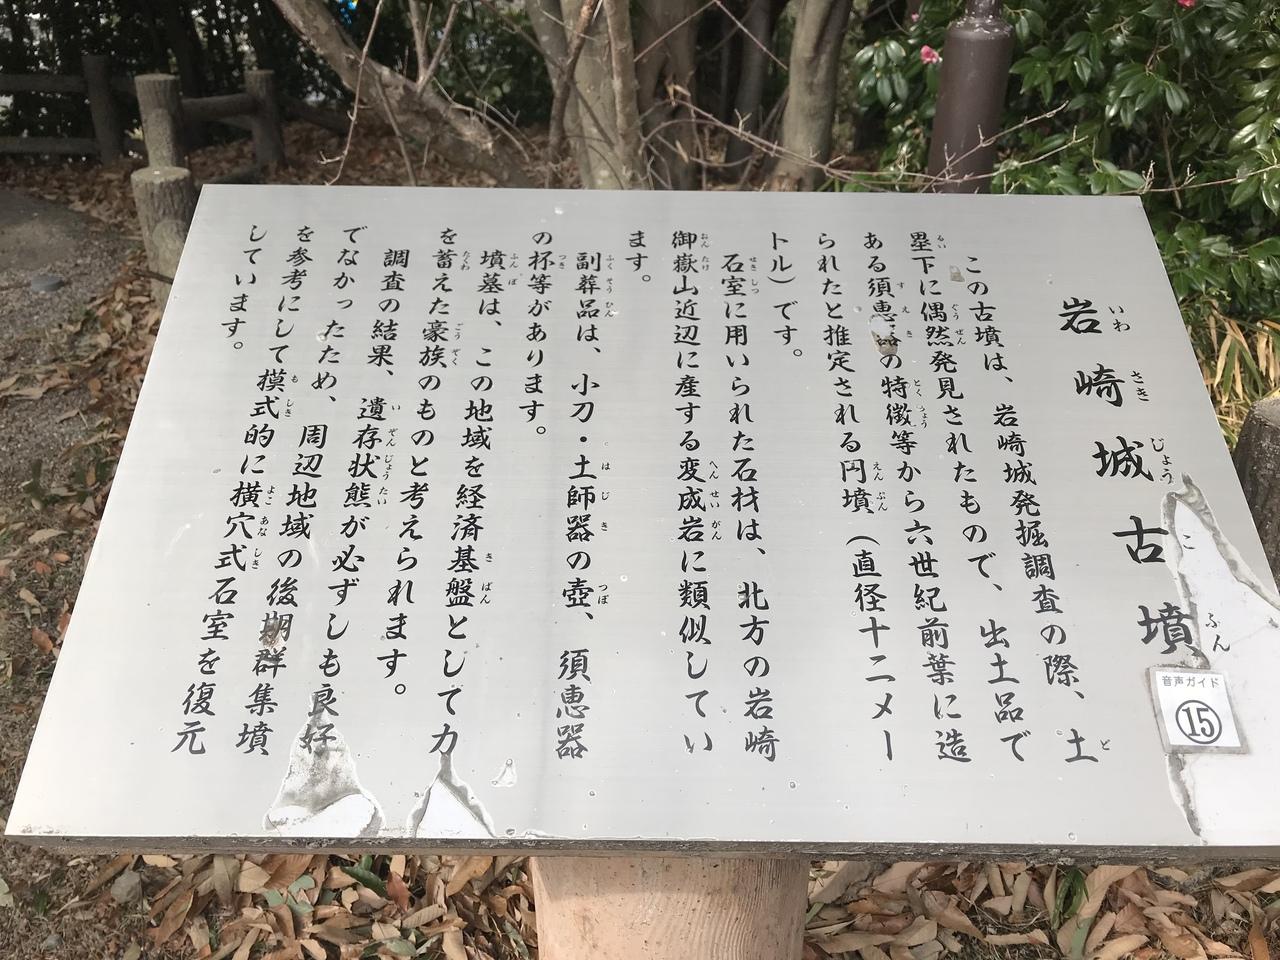 岩崎城古墳
いわさきじょうこふん
この古墳は、岩崎城発掘調査の際、土
塁下に偶然発見されたもので、出土品で
ある須恵器の特徴等から六世紀前葉に造
られたと推定される円墳（直径十二メー
トル）です。
石室に用いられた石材は、北方の岩崎
御嶽山近辺に産する変成岩に類似してい
ます。
副葬品は、小刀・土師器の壺、須恵器
の杯等があります。
墳墓は、この地域を経済基盤として力
を蓄えた豪族のものと考えられます。
調査の結果、遺存状態が必ずしも良好
でなかったため、周辺地域の後期群集墳
を参考にして模式的に横穴式石室を復元
しています。
音声ガイド
15